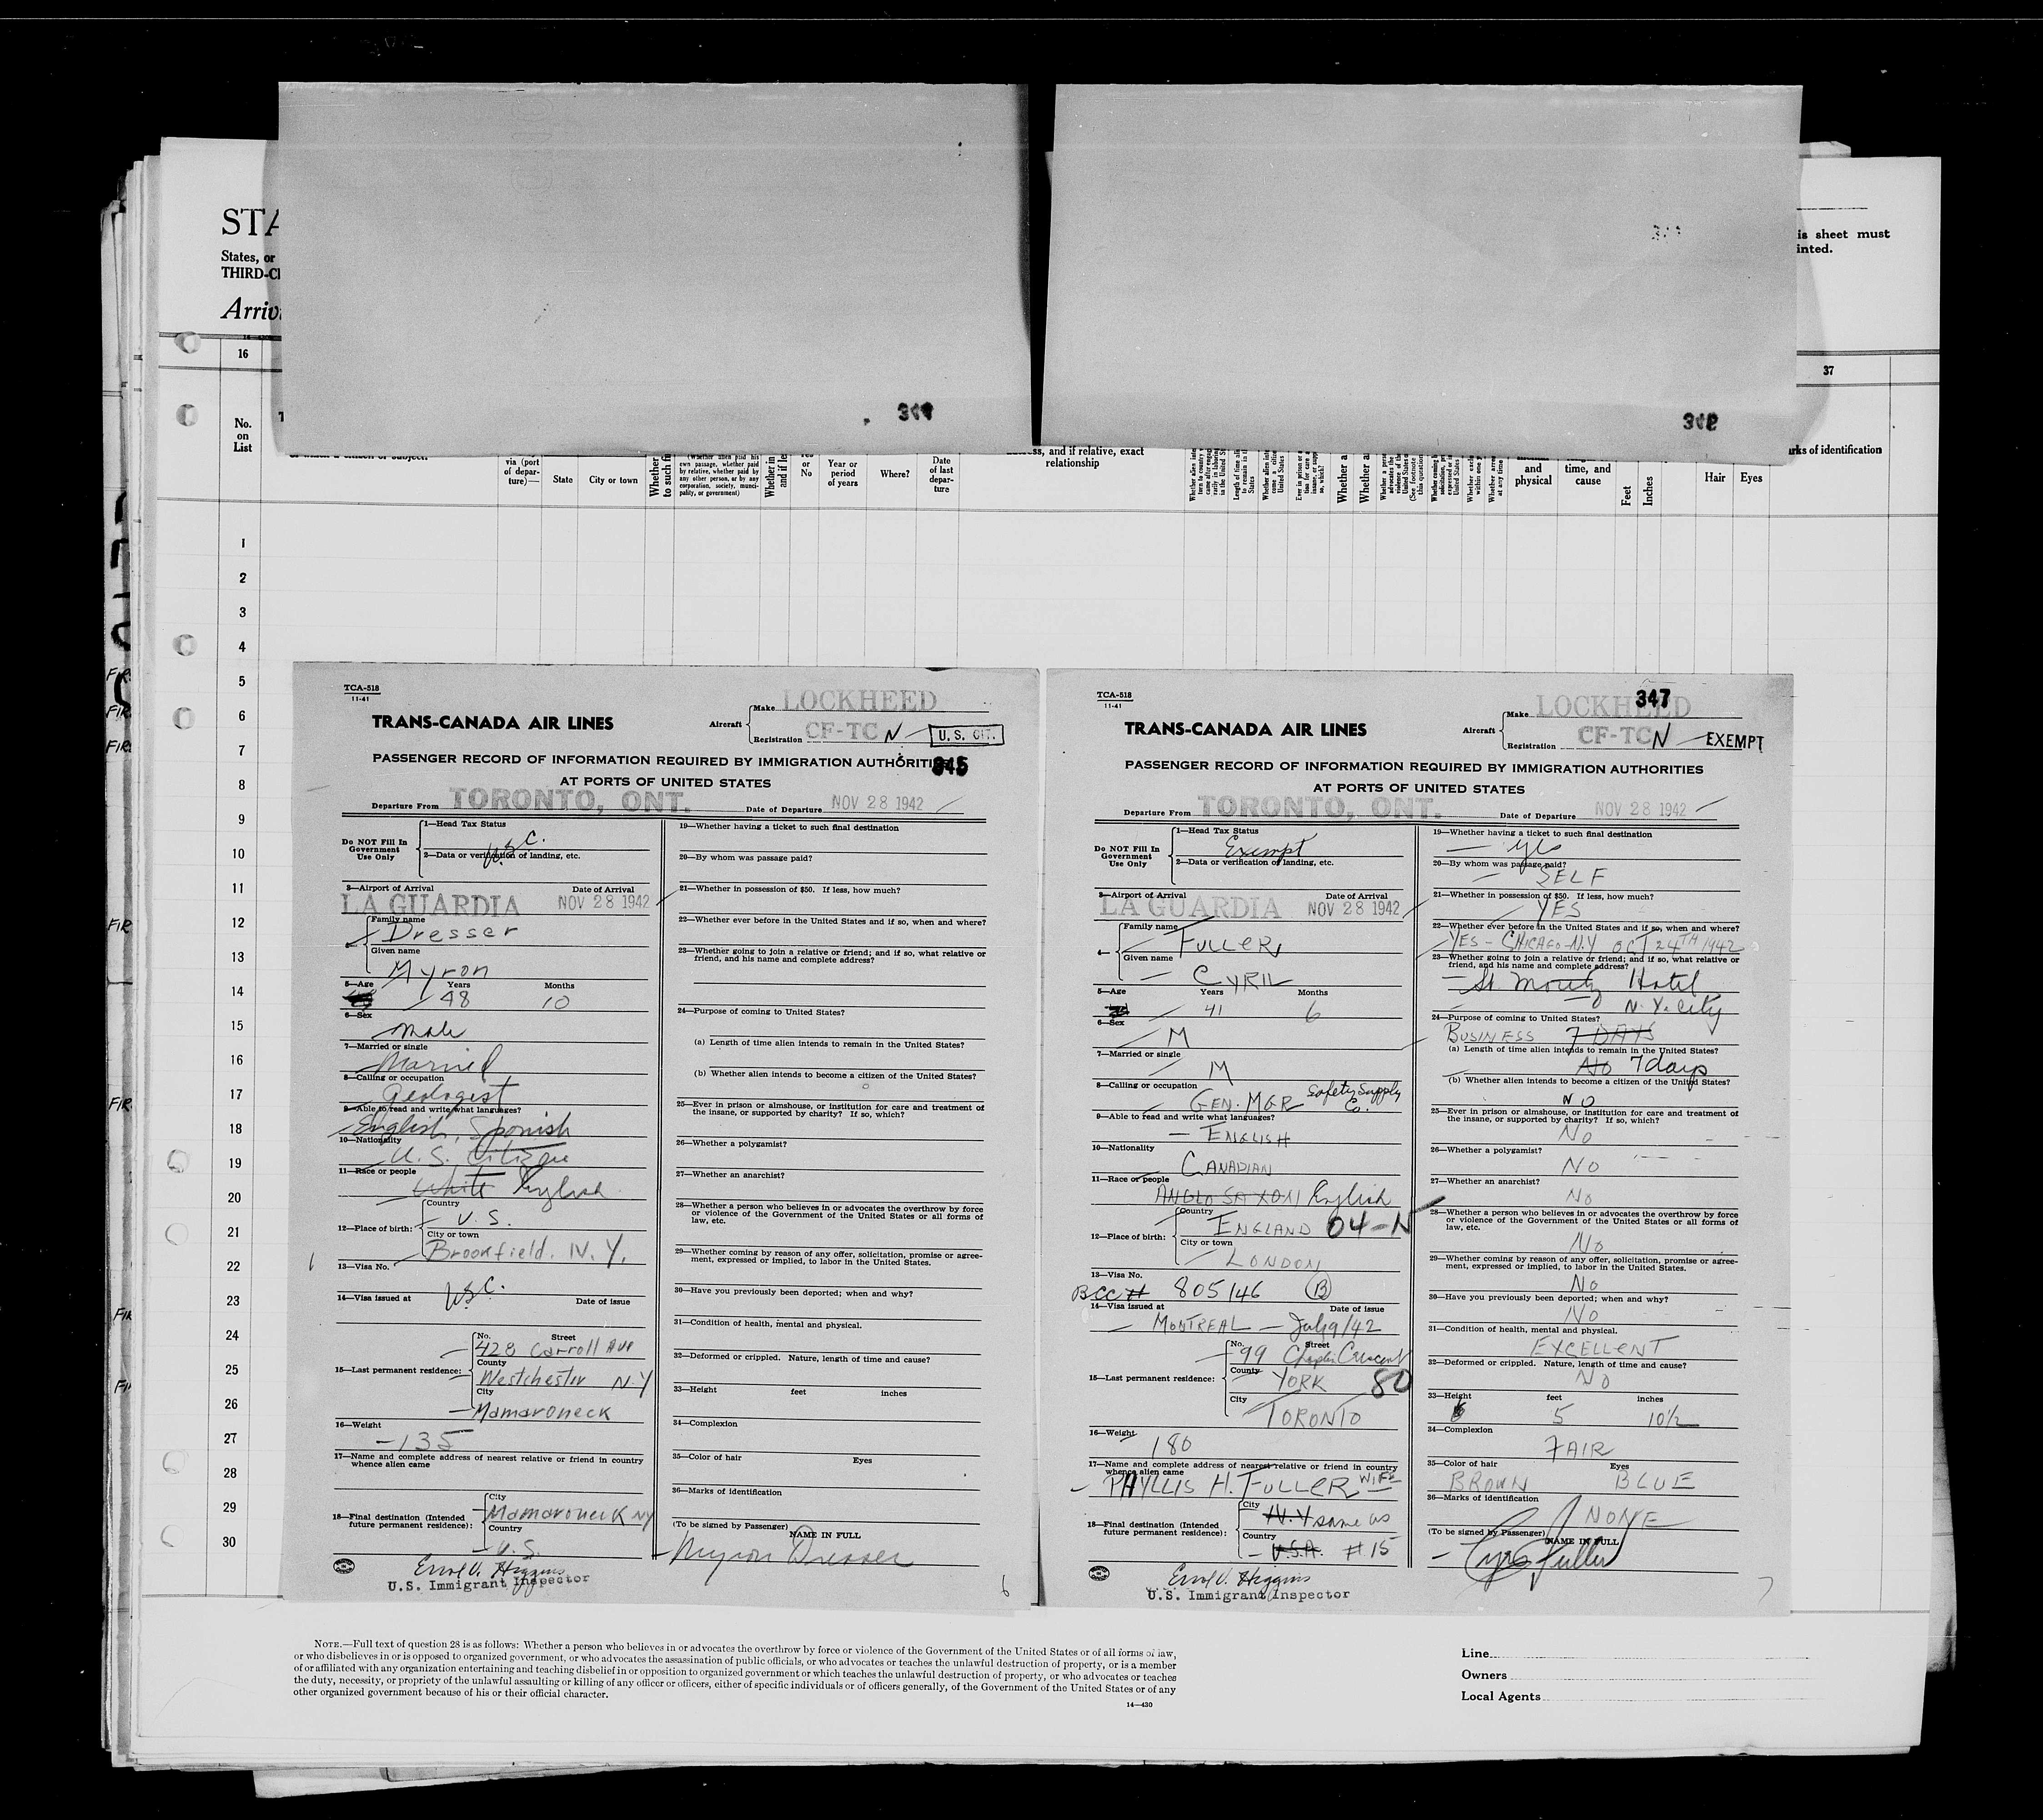 STA
States, or
THIRD-Cl
Arriv
is sheet must
inted.
16
37
No.
on
List
344
via (port
of depar-
ture)—
State
City or town
(Whether alien paid his
own passage, whether paid
by any other person, or by any
corporation, society, munici-
pality, or government)
or
No
Year or
period
of years
Where?
Date
of last
depar-
ture
ss, and if relative, exact
relationship
and
physical
time, and
cause
Feet
Inches
Hair
Eyes
rks of identification
1
2
3
4
5
6
7
8
9
10
11
12
13
14
15
16
17
18
19
20
21
22
23
24
25
26
27
28
29
30
TCA-518
11-41
TRANS-CANADA AIR LINES
Aircraft
Make LOCKHEED
Registration CF-TC N
U. S. CIT.
345
PASSENGER RECORD OF INFORMATION REQUIRED BY IMMIGRATION AUTHORITIES
AT PORTS OF UNITED STATES
Departure From TORONTO, ONT. Date of Departure NOV 28 1942
Do NOT Fill In
Government
Use Only
1—Head Tax Status
U.S.C.
2—Data or verification of landing, etc.
3—Airport of Arrival Date of Arrival
LA GUARDIA NOV 28 1942
Family name
Dresser
Given name
Myron
5—Age Years Months
48 10
6—Sex
Male
7—Married or single
Married
8—Calling or occupation
Geologist
9—Able to read and write what languages?
English, Spanish
10—Nationality
U.S. Citizen
11—Race or people
White English
12—Place of birth:
Country
U.S.
City or town
Brookfield. N.Y.
13—Visa No.
U.S.C.
14—Visa issued at Date of issue
15—Last permanent residence:
No. Street
428 Carroll Ave
County
Westchester N.Y
City
Mamaroneck
16—Weight
135
17—Name and complete address of nearest relative or friend in country
whence alien came
18—Final destination (Intended
future permanent residence):
City
Mamaroneck NY
Country
U.S.
Errol V. Higgins
U.S. Immigrant Inspector
19—Whether having a ticket to such final destination
20—By whom was passage paid?
21—Whether in possession of $50. If less, how much?
22—Whether ever before in the United States and if so, when and where?
23—Whether going to join a relative or friend; and if so, what relative or
friend, and his name and complete address?
24—Purpose of coming to United States?
(a) Length of time alien intends to remain in the United States?
(b) Whether alien intends to become a citizen of the United States?
25—Ever in prison or almshouse, or institution for care and treatment of
the insane, or supported by charity? If so, which?
26—Whether a polygamist?
27—Whether an anarchist?
28—Whether a person who believes in or advocates the overthrow by force
or violence of the Government of the United States or all forms of
law, etc.
29—Whether coming by reason of any offer, solicitation, promise or agree-
ment, expressed or implied, to labor in the United States.
30—Have you previously been deported; when and why?
31—Condition of health, mental and physical.
32—Deformed or crippled. Nature, length of time and cause?
33—Height feet inches
34—Complexion
35—Color of hair Eyes
36—Marks of identification
(To be signed by Passenger)
NAME IN FULL
Myron Dresser
6
TCA-518
11-41
347
TRANS-CANADA AIR LINES
Aircraft
Make LOCKHEED
Registration CF-TC N EXEMPT
PASSENGER RECORD OF INFORMATION REQUIRED BY IMMIGRATION AUTHORITIES
AT PORTS OF UNITED STATES
Departure From TORONTO, ONT. Date of Departure NOV 28 1942
Do NOT Fill In
Government
Use Only
1—Head Tax Status
Exempt
2—Data or verification of landing, etc.
3—Airport of Arrival Date of Arrival
LA GUARDIA NOV 28 1942
4—
Family name
FULLER
Given name
CYRIL
5—Age Years Months
41 6
6—Sex
M
7—Married or single
M
8—Calling or occupation
GEN. MGR Safety Supply Co.
9—Able to read and write what languages?
ENGLISH
10—Nationality
CANADIAN
11—Race or people
ANGLO SAXON English
12—Place of birth:
Country
ENGLAND 04-N
City or town
LONDON
13—Visa No.
BCC # 805146 (B)
14—Visa issued at Date of issue
MONTREAL — July 9/42
15—Last permanent residence:
No. Street
99 Crescent
County
YORK 80
City
TORONTO
16—Weight
180
17—Name and complete address of nearest relative or friend in country
whence alien came
PHYLLIS H. FULLER WIFE
18—Final destination (Intended
future permanent residence):
City
N.Y same as
Country
U.S.A. #15
Errol V. Higgins
U.S. Immigrant Inspector
19—Whether having a ticket to such final destination
yes
20—By whom was passage paid?
SELF
21—Whether in possession of $50. If less, how much?
YES
22—Whether ever before in the United States and if so, when and where?
YES - CHICAGO-N.Y OCT 24TH 1942
23—Whether going to join a relative or friend; and if so, what relative or
friend, and his name and complete address?
St. Moritz Hotel
N. Y. City
24—Purpose of coming to United States?
BUSINESS 7 DAYS
(a) Length of time alien intends to remain in the United States?
No 7 days
(b) Whether alien intends to become a citizen of the United States?
NO
25—Ever in prison or almshouse, or institution for care and treatment of
the insane, or supported by charity? If so, which?
No
26—Whether a polygamist?
NO
27—Whether an anarchist?
No
28—Whether a person who believes in or advocates the overthrow by force
or violence of the Government of the United States or all forms of
law, etc.
No
29—Whether coming by reason of any offer, solicitation, promise or agree-
ment, expressed or implied, to labor in the United States.
No
30—Have you previously been deported; when and why?
NO
31—Condition of health, mental and physical.
EXCELLENT
32—Deformed or crippled. Nature, length of time and cause?
NO
33—Height feet inches
5 10½
34—Complexion
FAIR
35—Color of hair Eyes
BROWN BLUE
36—Marks of identification
NONE
(To be signed by Passenger)
NAME IN FULL
Cyril Fuller
7
NOTE.—Full text of question 28 is as follows: Whether a person who believes in or advocates the overthrow by force or violence of the Government of the United States or of all forms of law,
or who disbelieves in or is opposed to organized government, or who advocates the assassination of public officials, or who advocates or teaches the unlawful destruction of property, or is a member
of or affiliated with any organization entertaining and teaching disbelief in or opposition to organized government or which teaches the unlawful destruction of property, or who advocates or teaches
the duty, necessity, or propriety of the unlawful assaulting or killing of any officer or officers, either of specific individuals or of officers generally, of the Government of the United States or of any
other organized government because of his or their official character.
14—430
Line
Owners
Local Agents